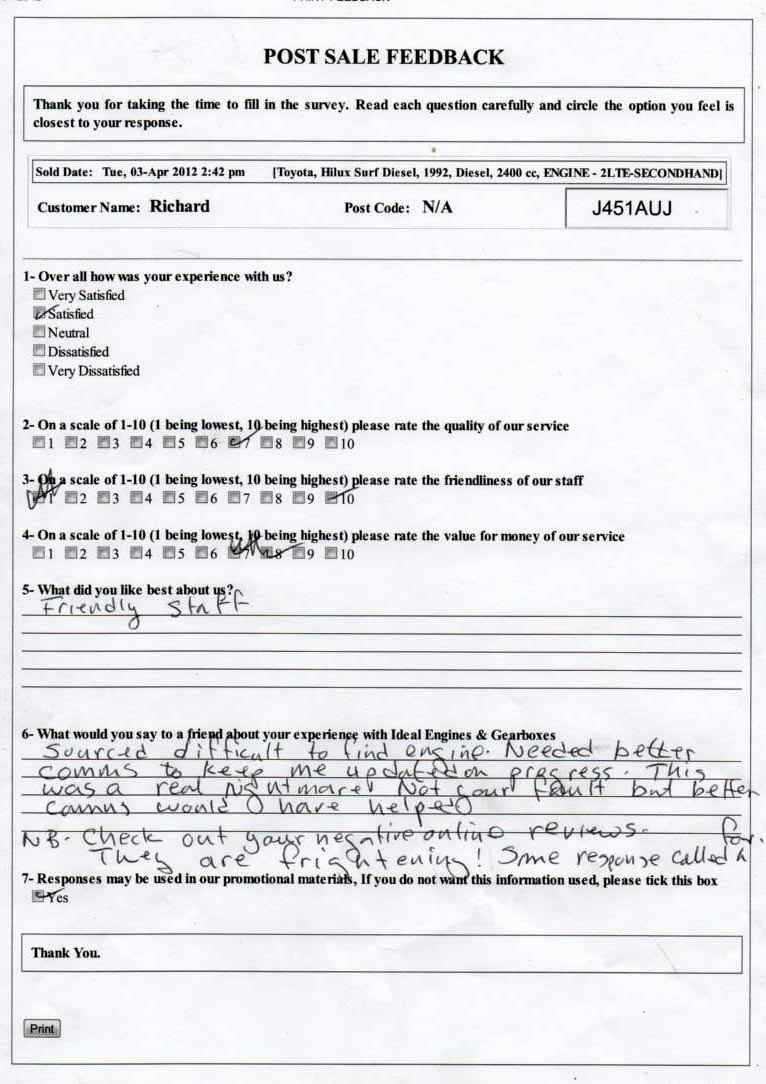 POST SALE FEEDBACK
Thank you for taking the time to fill in the survey. Read each question carefully and circle the option you feel is
closest to your response.
Sold Date: Tue, 03-Apr 2012 2:42 pm [Toyota, Hilux Surf Diesel, 1992, Diesel, 2400 cc, ENGINE - 2LTE-SECONDHAND]
Customer Name: Richard Post Code: N/A J451AUJ
1- Over all how was your experience with us?
Very Satisfied
Satisfied
Neutral
Dissatisfied
Very Dissatisfied
2- On a scale of 1-10 (1 being lowest, 10 being highest) please rate the quality of our service
1 2 3 4 5 6 7 8 9 10
3- On a scale of 1-10 (1 being lowest, 10 being highest) please rate the friendliness of our staff
1 2 3 4 5 6 7 8 9 10
4- On a scale of 1-10 (1 being lowest, 10 being highest) please rate the value for money of our service
1 2 3 4 5 6 7 8 9 10
5- What did you like best about us?
Friendly Staff
6- What would you say to a friend about your experience with Ideal Engines & Gearboxes
Sourced difficult to find engine. Needed better
comms to keep me updated on progress. This
was a real nightmare! Not your fault but better
comms would have helped
NB. Check out your negative online reviews.
They are frightening! Some response called for.
7- Responses may be used in our promotional materials, If you do not want this information used, please tick this box
Yes
Thank You.
Print